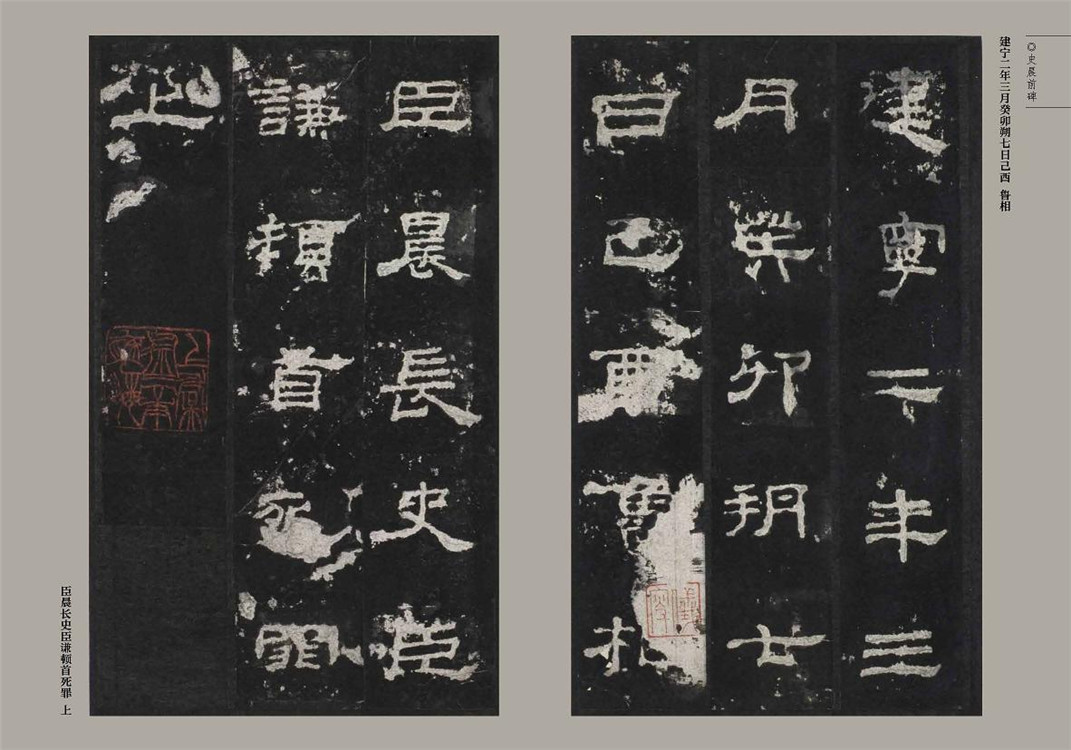 ◎史晨前碑
建宁二年三月癸卯朔七日己酉 鲁相
建寧二年三
月癸卯朔七
日己酉魯相
臣晨長史臣
謙頓首死罪
上
臣晨长史臣谦顿首死罪 上